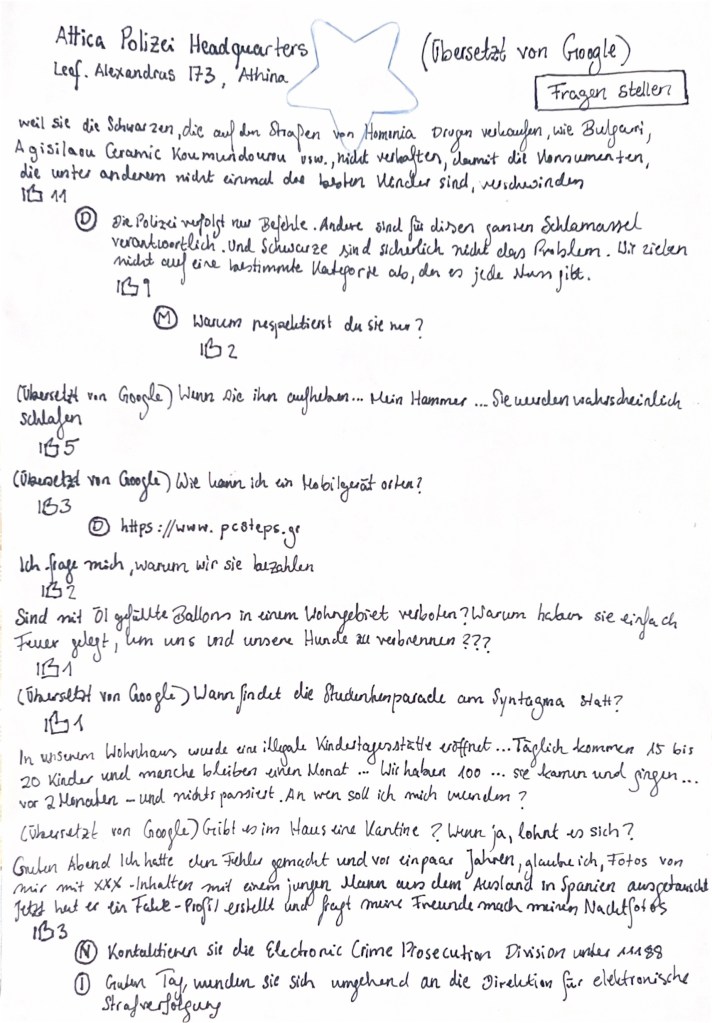 Attica Polizei Headquarters
(Übersetzt von Google)
Leof. Alexandras 173, Athina
Fragen stellen
weil sie die Schwarzen, die auf den Straßen von Homonia Drogen verkaufen, wie Bulgari,
Agisilaou Ceramic Koumoundourou usw., nicht verhaften, damit die Konsumenten,
die unter anderem nicht einmal die besten Kinder sind, verschwinden
11
D Die Polizei verfolgt nur Befehle. Andere sind für diesen ganzen Schlamassel
verantwortlich. Und Schwarze sind sicherlich nicht das Problem. Wir zielen
nicht auf eine bestimmte Kategorie ab, den es jede Nuss gibt.
9
M Warum respektierst du sie nur?
2
(Übersetzt von Google) Wenn Sie ihn aufheben... Mein Hammer ... Sie werden wahrscheinlich
schlafen
5
(Übersetzt von Google) Wie kann ich ein Mobilgerät orten?
3
D https://www.pcsteps.gr
Ich frage mich, warum wir sie bezahlen
2
Sind mit Öl gefüllte Ballons in einem Wohngebiet verboten? Warum haben sie einfach
Feuer gelegt, um uns und unsere Hunde zu verbrennen ???
1
(Übersetzt von Google) Wann findet die Studentenparade am Syntagma statt?
1
In unserem Wohnhaus wurde eine illegale Kindertagesstätte eröffnet ... Täglich kommen 15 bis
20 Kinder und manche bleiben einen Monat ... Wir haben 100 ... sie kamen und gingen...
vor 2 Monaten - und nichts passiert. An wen soll ich mich wenden?
(Übersetzt von Google) Gibt es im Haus eine Kantine? Wenn ja, lohnt es sich?
Guten Abend Ich hatte den Fehler gemacht und vor ein paar Jahren, glaube ich, Fotos von
mir mit XXX-Inhalten mit einem jungen Mann aus dem Ausland in Spanien ausgetauscht
Jetzt hat er ein Fake-Profil erstellt und fragt meine Freunde nach meinen Nacktfotos
3
N Kontaktieren sie die Electronic Crime Prosecution Division unter 11188
I Guten Tag, wenden Sie sich umgehend an die Direktion für elektronische
Strafverfolgung